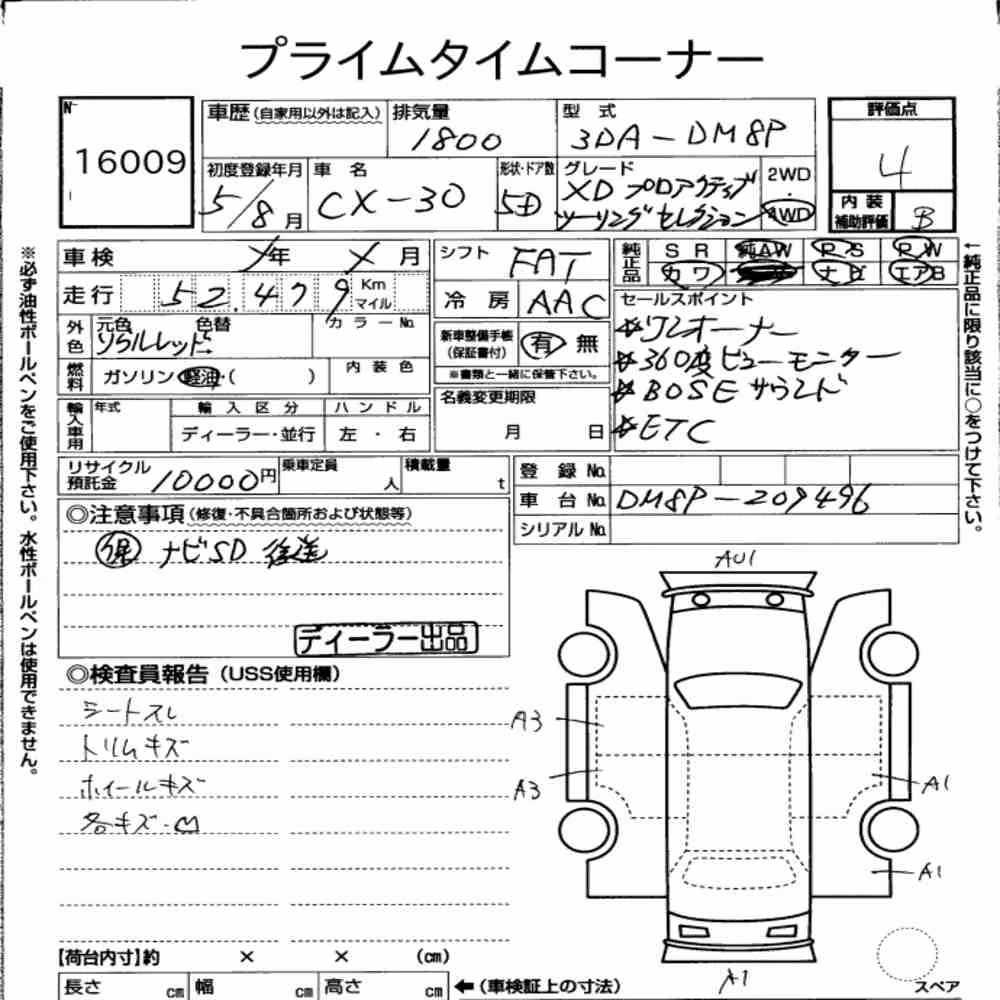 プライムタイムコーナー
N-
16009
車歴 (自家用以外は記入)
排気量
1800
型 式
3DA-DM8P
評価点
4
内装
補助評価
B
初度登録年月
5/8月
車 名
CX-30
形状・ドア数
5D
グレード
XD プロアクティブ
ツーリングセレクション
2WD
・
4WD
車検
年
月
シフト
FAT
純正品
SR
純AW
R・S
R・W
カワ
ナビ
エアB
走行
52,479
Km
マイル
冷 房
AAC
外色
元色
色替
カラーNo.
ソウルレッド
燃料
ガソリン・軽油・( )
内装色
新車整備手帳
(保証書付)
有
無
※書類と一緒に保管下さい。
セールスポイント
☆ワンオーナー
☆360度ビューモニター
☆BOSEサウンド
☆ETC
輸入車用
年式
輸入区分
ディーラー・並行
ハンドル
左・右
名義変更期限
月 日
リサイクル
預託金
10000円
乗車定員
人
積載量
t
登 録 No.
車 台 No.
DM8P-209496
シリアルNo.
◎注意事項 (修復・不具合箇所および状態等)
保 ナビSD 後送
ディーラー出品
◎検査員報告 (USS使用欄)
シートスレ
トリムキズ
ホイールキズ
各キズ・凹
AU1
A3
A3
A1
A1
A1
スペア
【荷台内寸】約 × × (cm)
長さ cm
幅 cm
高さ cm
←(車検証上の寸法)
※必ず油性ボールペンをご使用下さい。水性ボールペンは使用できません。
↑純正品に限り該当に○をつけて下さい。